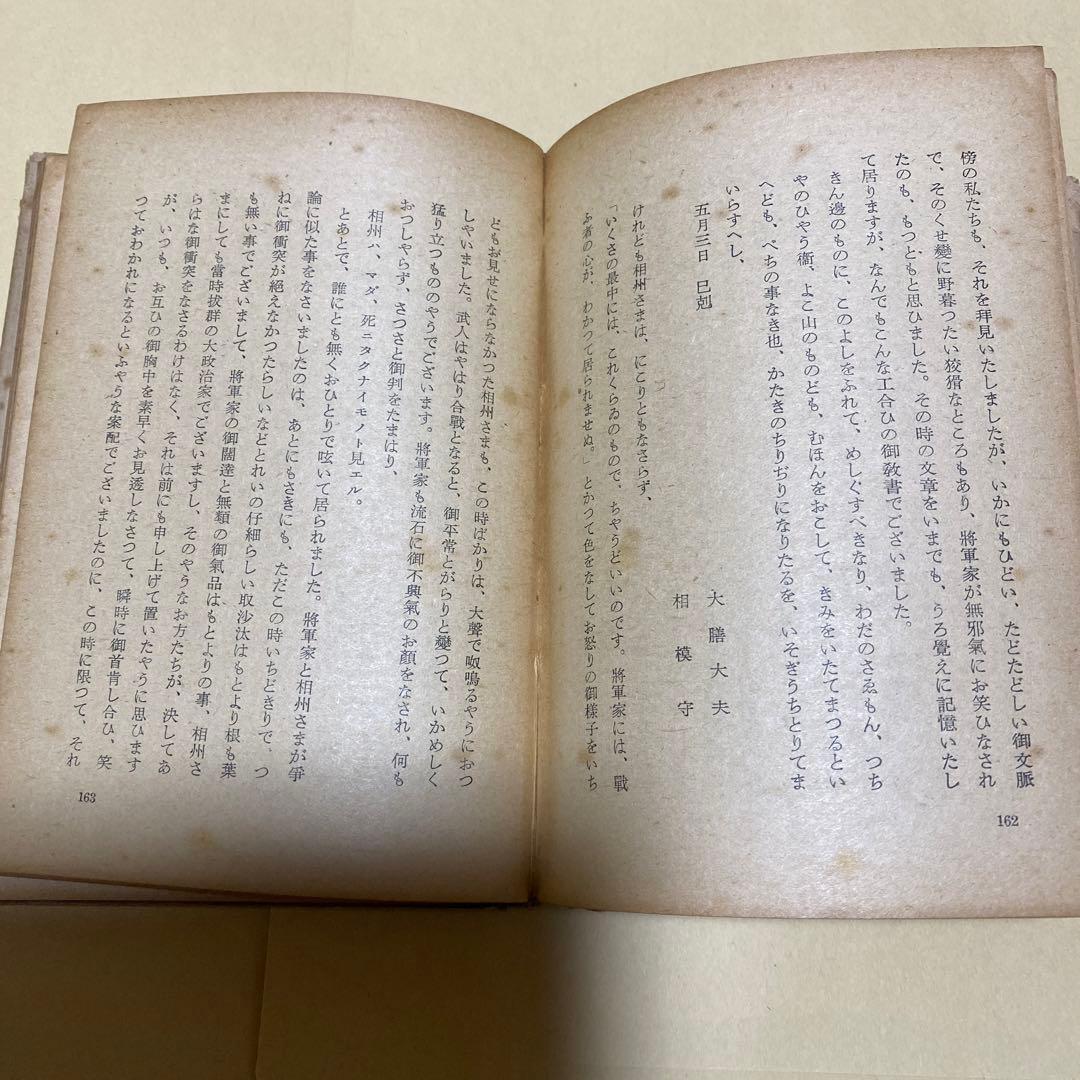 傍の私たちも、それを拜見いたしましたが、いかにもひどい、たどたどしい御文脈
で、そのくせ變に野暮つたい狡猾なところもあり、將軍家が無邪氣にお笑ひなされ
たのも、もつともと思ひました。その時の文章をいまでも、うろ覺えに記憶いたし
て居りますが、なんでもこんな工合ひの御敎書でございました。
きん邊のものに、このよしをふれて、めしぐすべきなり、わだのさゑもん、つち
やのひやう衞、よこ山のものども、むほんをおこして、きみをいたてまつるとい
へども、べちの事なき也、かたきのちりぢりになりたるを、いそぎうちとりてま
いらすへし、
五月三日 巳剋
大膳大夫
相模守
けれども相州さまは、にこりともなさらず、
「いくさの最中には、これくらゐのもので、ちやうどいいのです。將軍家には、戰
ふ者の心が、わかつて居られませぬ。」とかつて色をなしてお怒りの御樣子をいち
162
ともお見せにならなかつた相州さまも、この時ばかりは、大聲で呶鳴るやうにおつ
しやいました。武人はやはり合戰となると、御平常とがらりと變つて、いかめしく
猛り立つもののやうでございます。將軍家も流石に御不興氣のお顏をなされ、何も
おつしやらず、さつさと御判をたまはり、
相州ハ、マダ、死ニタクナイモノト見エル。
とあとで、誰にとも無くおひとりで呟いて居られました。將軍家と相州さまが爭
論に似た事をなさいましたのは、あとにもさきにも、ただこの時いちどきりで、つ
ねに御衝突が絕えなかつたらしいなどとれいの仔細らしい取沙汰はもとより根も葉
も無い事でございまして、將軍家の御闊達と無類の御氣品はもとよりの事、相州さ
まにしても當時拔群の大政治家でございますし、そのやうなお方たちが、決してあ
らはな御衝突をなさるわけはなく、それは前にも申し上げて置いたやうに思ひます
が、いつも、お互ひの御胸中を素早くお見透しなさつて、瞬時に御首肯し合ひ、笑
つておわかれになるといふやうな案配でございましたのに、この時に限つて、それ
163